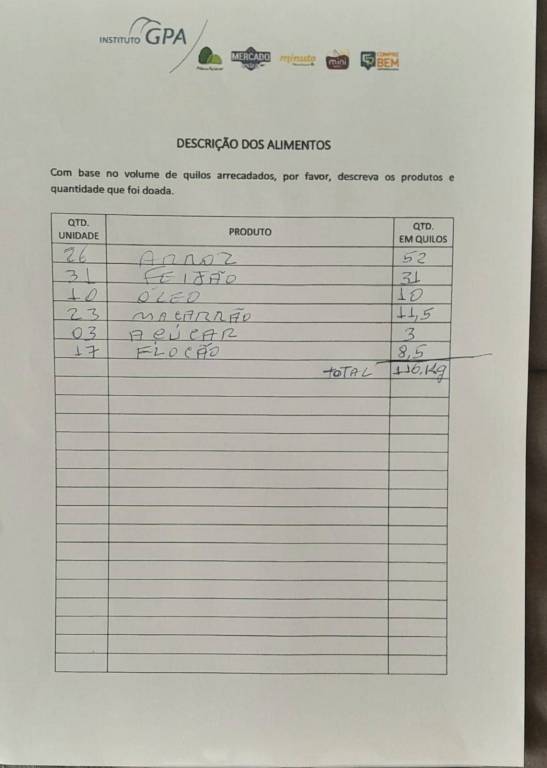 INSTITUTO GPA
MERCADO
minuto
mini
COMPRE
BEM
DESCRIÇÃO DOS ALIMENTOS
Com base no volume de quilos arrecadados, por favor, descreva os produtos e
quantidade que foi doada.
QTD. UNIDADE PRODUTO QTD. EM QUILOS
26 ARROZ 52
31 FEIJÃO 31
10 ÓLEO 10
23 MACARRÃO 11,5
03 AÇÚCAR 3
17 FLOCÃO 8,5
TOTAL 116,Kg